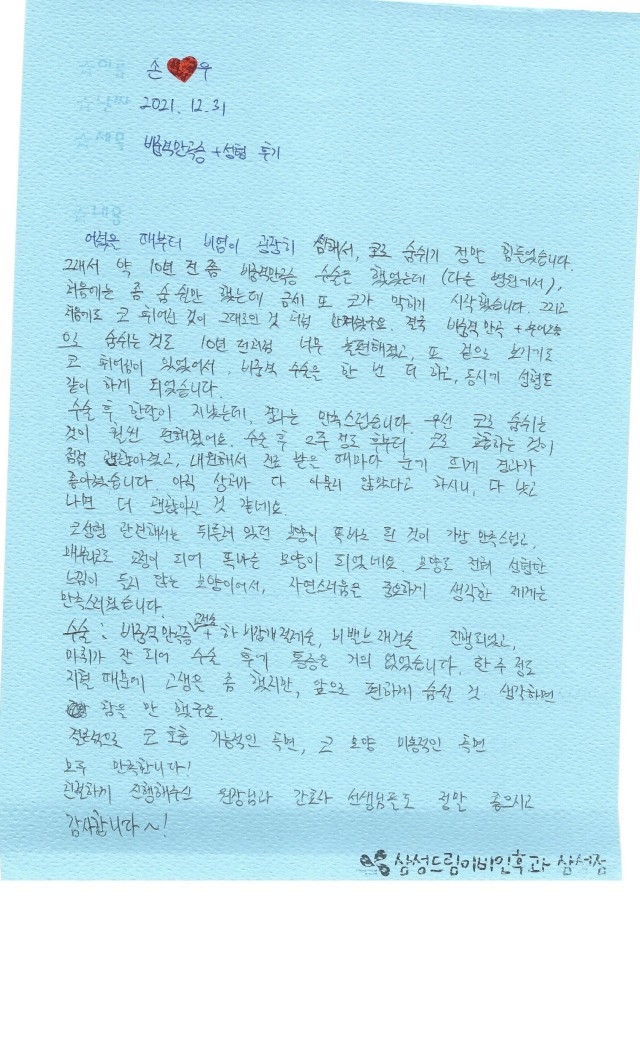 손 우
2021. 12. 31
비중격만곡증 + 성형 후기
어렸을 때부터 비염이 굉장히 심해서, 코로 숨쉬기 정말 힘들었습니다.
그래서 약 10년 전 쯤 비중격만곡증 수술은 했었는데 (다른 병원에서),
처음에는 좀 숨쉴만 했는데 금새 또 코가 막히기 시작했습니다. 그리고
코 휘어진 것이 그대로인 것 처럼 결국 비중격 만곡 +
으로 숨쉬는 것도 10년 전처럼 너무 불편해졌고, 또 겉으로 보기에도
코 휘어짐이 있었어서, 비중격 수술은 한 번 더 하고, 동시에 성형도
같이 하게 되었습니다.
수술 후 한달이 지났는데, 결과는 만족스럽습니다. 우선 코로 숨쉬는
것이 훨씬 편해졌어요. 수술 후 2주 정도 후부터 코로 호흡하는 것이
점점 괜찮아졌고, 내원해서 진료 받은 때마다 눈에 띄게 결과가
좋아졌습니다. 아직 상처가 다 아물지 않았다고 하시니, 다 낫고
나면 더 괜찮아진 것 같네요.
코성형 관련해서는 뒤틀려 있던 모양이 똑바로 된 것이 가장 만족스럽고,
교정이 되어 모양이 되었네요. 모양도 전혀 성형한
느낌이 들지 않는 모양이어서, 자연스러움은 중요하게 생각한 제게는
만족스러웠습니다.
수술 : 비중격만곡증 교정술 + 하비갑개절제술, 비밸브재건술 진행되었고,
마취가 잘 되어 수술 후에 통증은 거의 없었습니다. 한 주 정도
지혈 때문에 고생은 좀 했지만, 앞으로 편하게 숨쉴 것 생각하면
참을 만 했구요.
결론적으로 코 호흡 기능적인 측면, 코 모양 미용적인 측면
모두 만족합니다!
친절하게 진행해주신 원장님과 간호사 선생님들도 정말 좋으시고
감사합니다~!
삼성드림이비인후과 삼성점